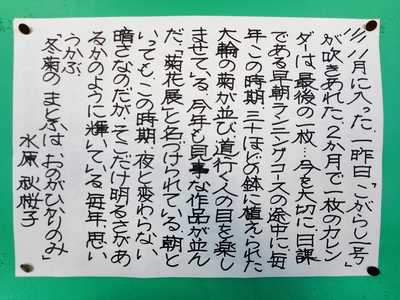 11月に入った。一昨日「こがらし一号」
が吹きあれた。2カ月で一枚のカレン
ダーは、最後の一枚…今を大切に、日課
である早朝ランニングコースの途中に、毎
年この時期、三十ほどの鉢に植えられた
大輪の菊が並び、道行く人の目を楽し
ませている。今年も見事な作品が並ん
だ。「菊花展」と名づけられている。朝と
いっても、この時期…夜と変わらない
暗さなのだが、そこだけ明るさがあ
るかのように輝いている。毎年、思い
うかぶ
「冬菊の まとふは おのがひかりのみ」
水原 秋桜子